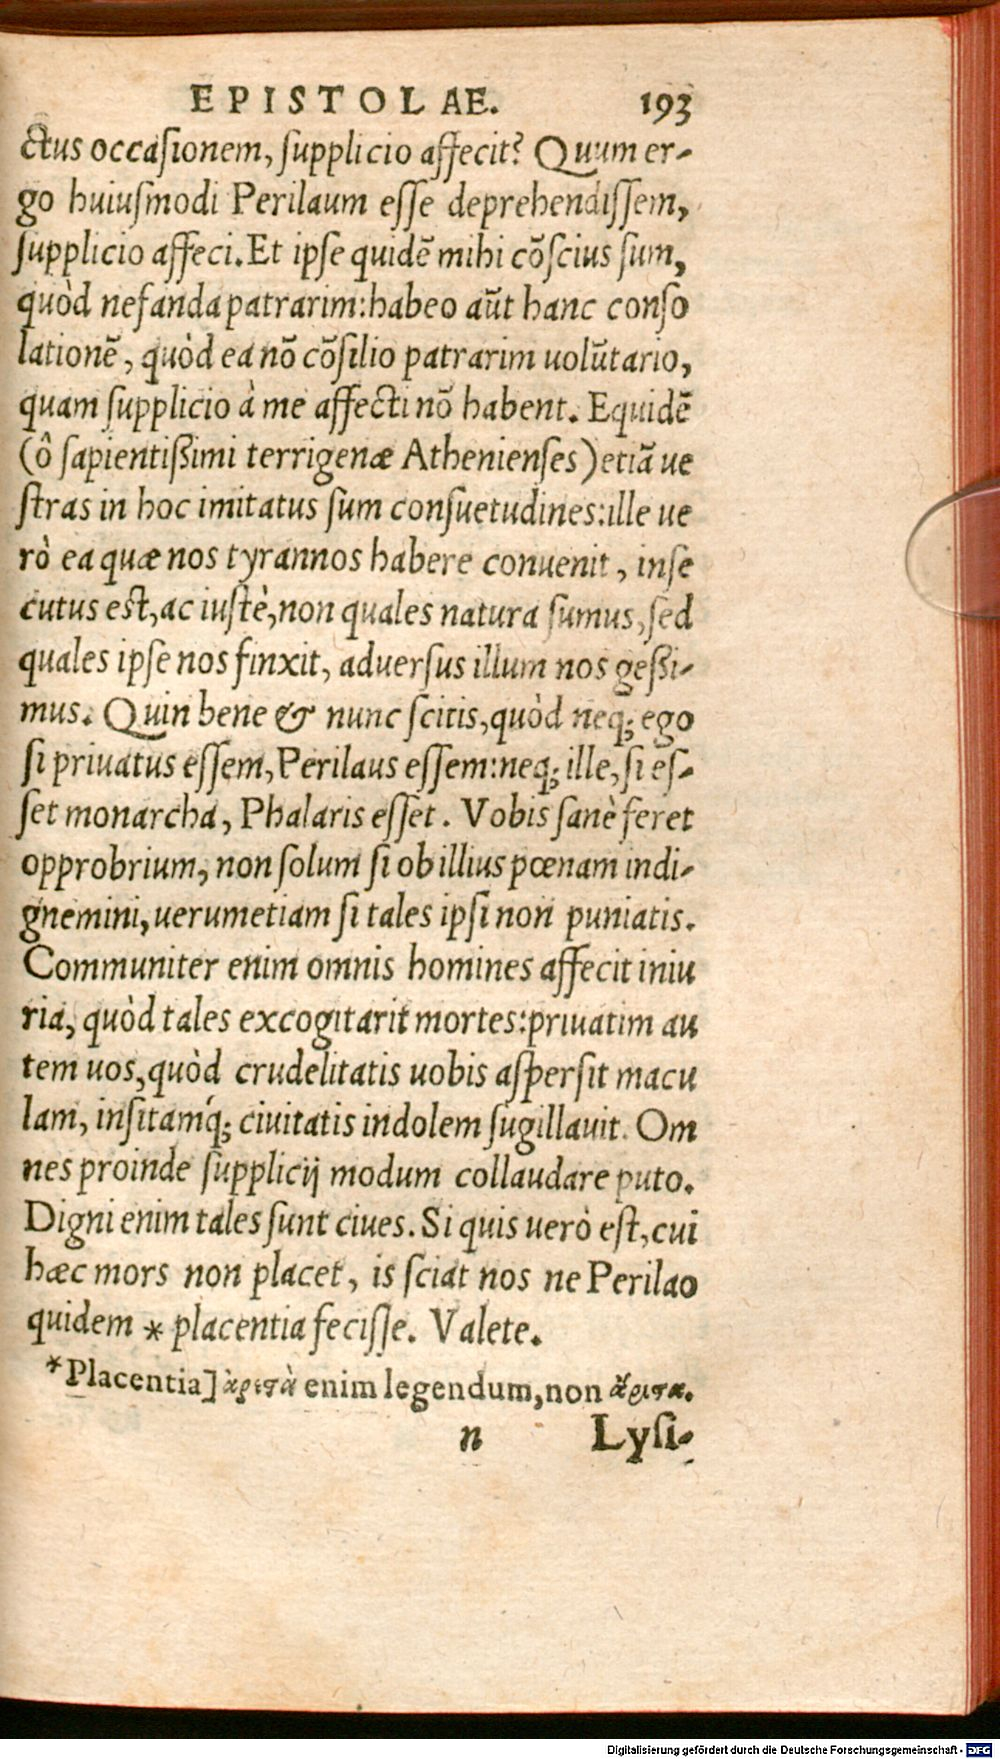 EPISTOLAE. 193
ctus occasionem, supplicio affecit? Quum er-
go huiusmodi Perilaum esse deprehendissem,
supplicio affeci. Et ipse quidē mihi cōscius sum,
quòd nefanda patrarim: habeo aūt hanc conso
lationē, quòd ea nō cōsilio patrarim uolūtario,
quam supplicio à me affecti nō habent. Equidē
(ô sapientißimi terrigenæ Athenienses) etiā ue
stras in hoc imitatus sum consuetudines: ille ue
rò ea quæ nos tyrannos habere conuenit, inse
cutus est, ac iustè, non quales natura sumus, sed
quales ipse nos finxit, aduersus illum nos geßi-
mus. Quin bene & nunc scitis, quòd neq; ego
si priuatus essem, Perilaus essem: neq; ille, si es-
set monarcha, Phalaris esset. Vobis sanè feret
opprobrium, non solum si ob illius pœnam indi-
gnemini, uerumetiam si tales ipsi non puniatis.
Communiter enim omnis homines affecit iniu
ria, quòd tales excogitarit mortes: priuatim au
tem uos, quòd crudelitatis uobis aspersit macu
lam, insitamq́; ciuitatis indolem sugillauit. Om
nes proinde supplicij modum collaudare puto.
Digni enim tales sunt ciues. Si quis uerò est, cui
hæc mors non placet, is sciat nos ne Perilao
quidem * placentia fecisse. Valete.
*Placentia] ἀρεστὰ enim legendum, non ἄριστα.
n Lysi-
Digitalisierung gefördert durch die Deutsche Forschungsgemeinschaft - DFG